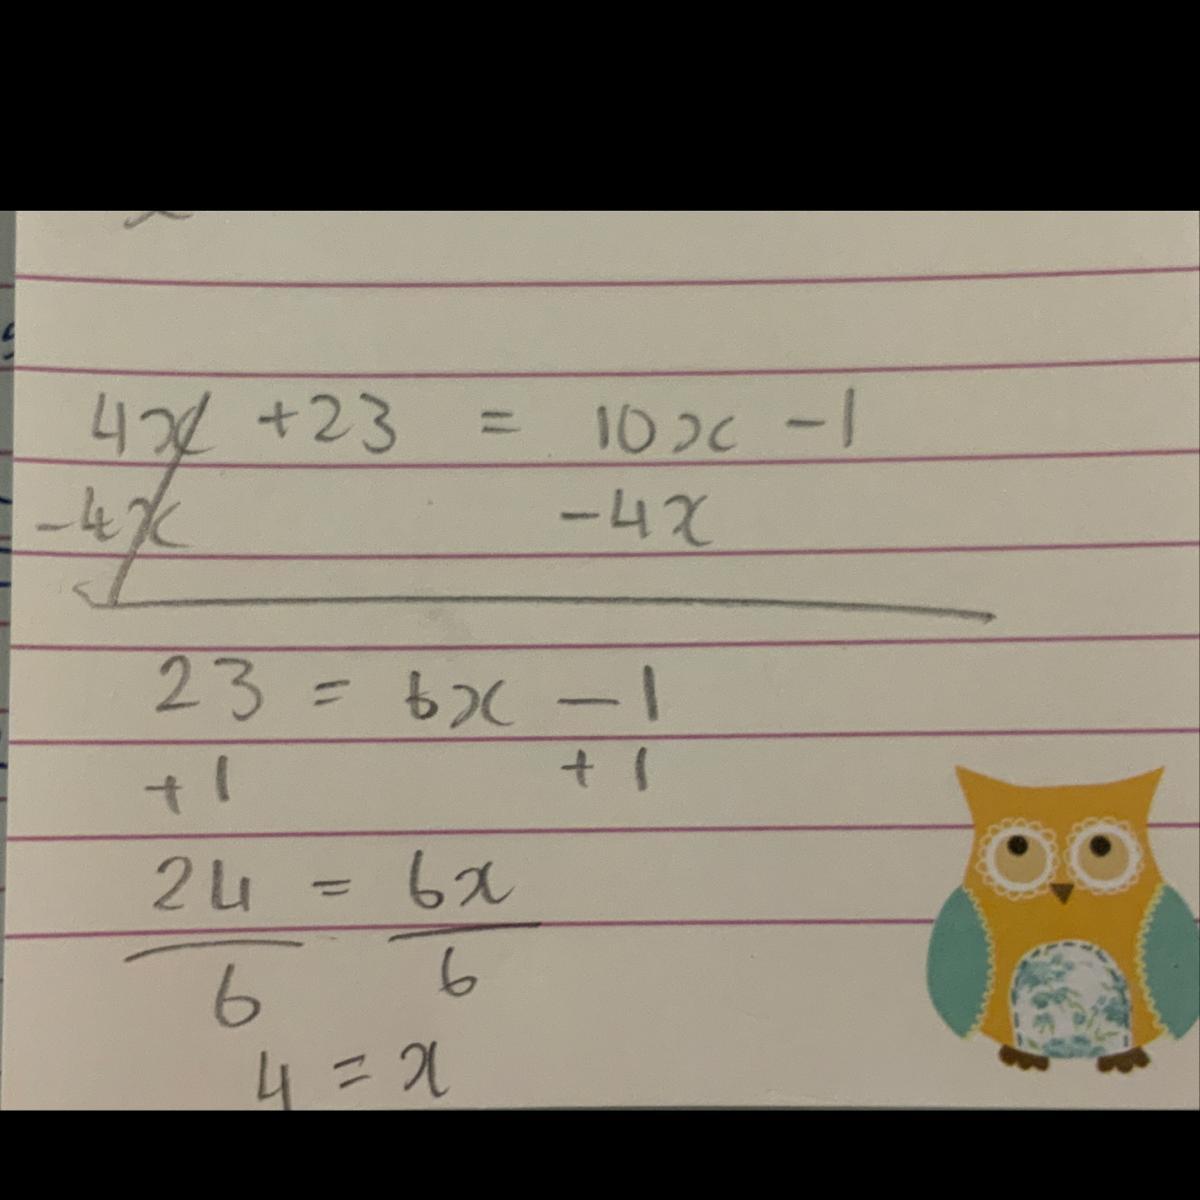 4x + 23 = 10x - 1
-4x -4x
23 = 6x - 1
+1 +1
24 = 6x
6 6
4 = x